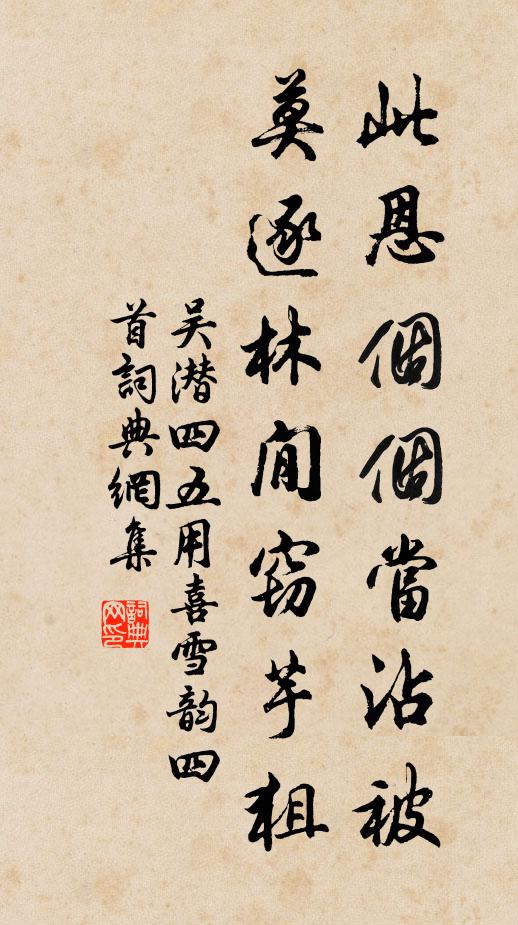 此恩個個當沾被
莫逐林間窃芋狙
吴潜四五用喜雪韵四
首詞典網集
詞典
网印